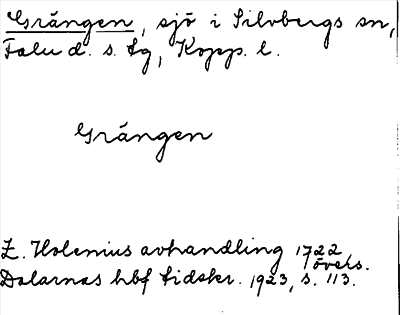 Grängen, sjö i Silvbergs sn,
Falu d. s. tg, Kopp. l.
Grängen
Z. Holenius avhandling 1722
övers.
Dalarnas hbf tidskr. 1923, s. 113.